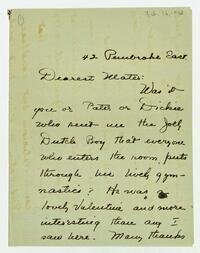 42 Pembroke East
Dearest Mater:
Was it
you or Pater or Dickie
who sent me the Jolly
Dutch Boy that everyone
who enters the room puts
through his lively gym-
nastics? He was a
lovely Valentine and more
interesting than any I
saw here. Many thanks